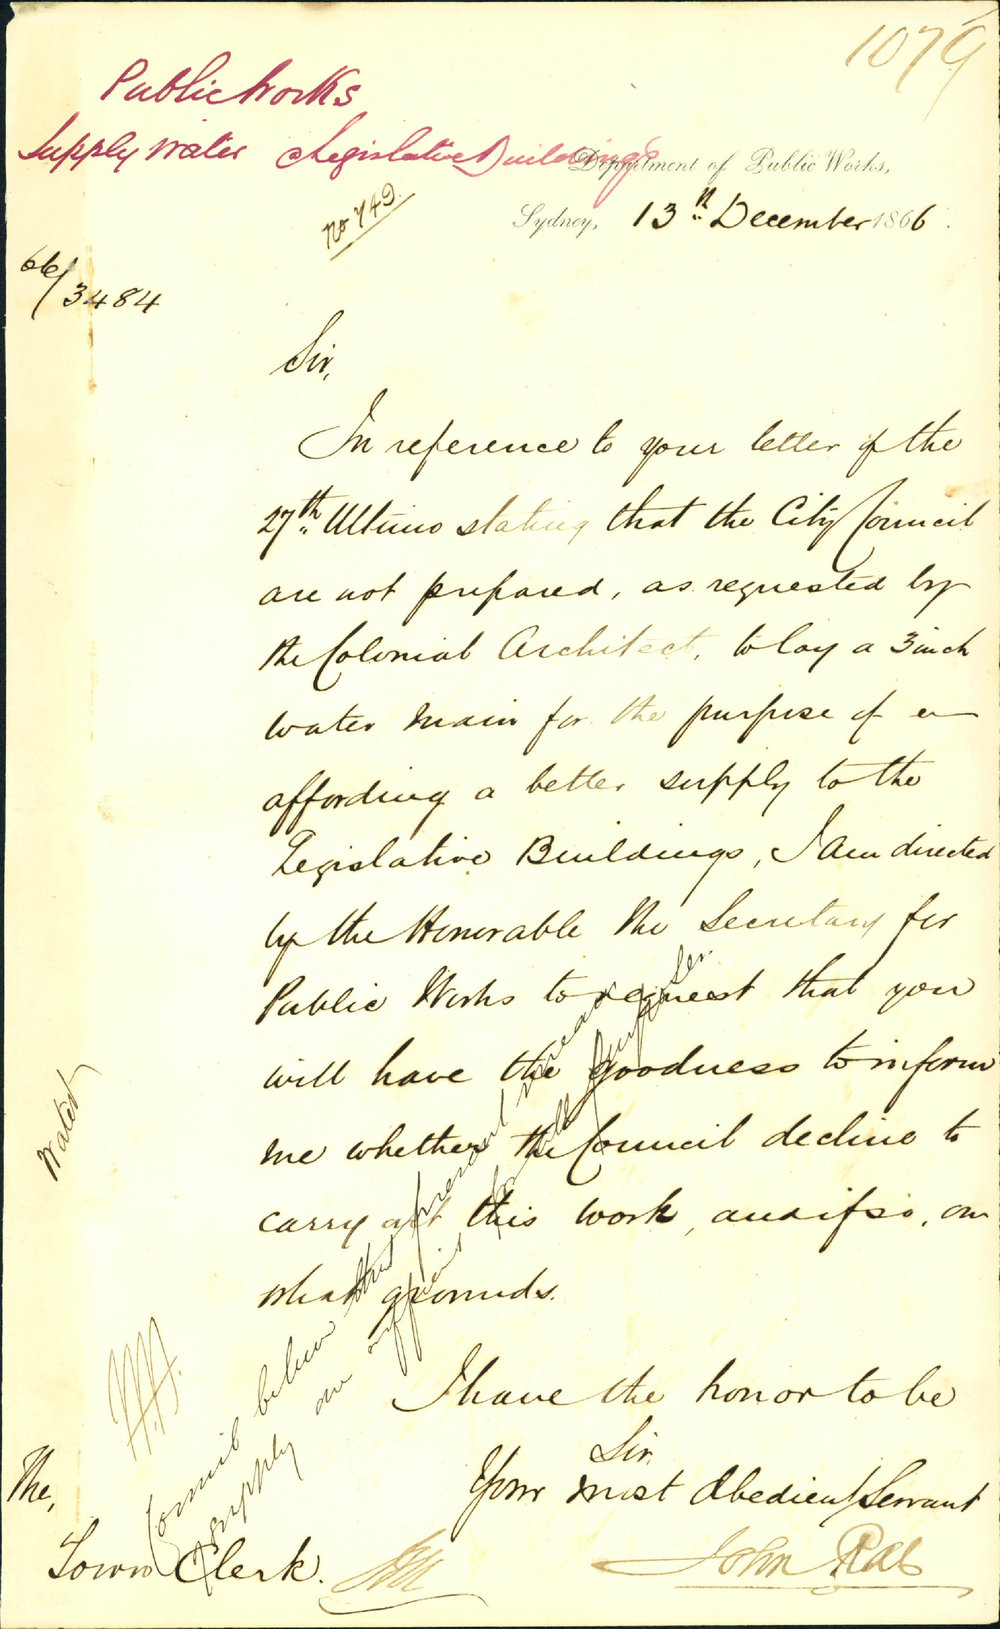 1079
Public Works
Supply Water Legislative Buildings
Department of Public Works,
No 749.
Sydney, 13th December 1866.
66/3484
Sir,
In reference to your letter of the
27th Ultimo stating that the City Council
are not prepared, as requested by
the Colonial Architect, to lay a 3 inch
water main for the purpose of
affording a better supply to the
Legislative Buildings, I am directed
by the Honorable the Secretary for
Public Works to request that you
will have the goodness to inform
me whether the Council decline to
carry out this work, and if so, on
what grounds.
I have the honor to be
Sir,
Your most Obedient Servant
John Rae
The,
Town Clerk.
Water
Council believe that present mean
of supply are sufficient for all purposes.